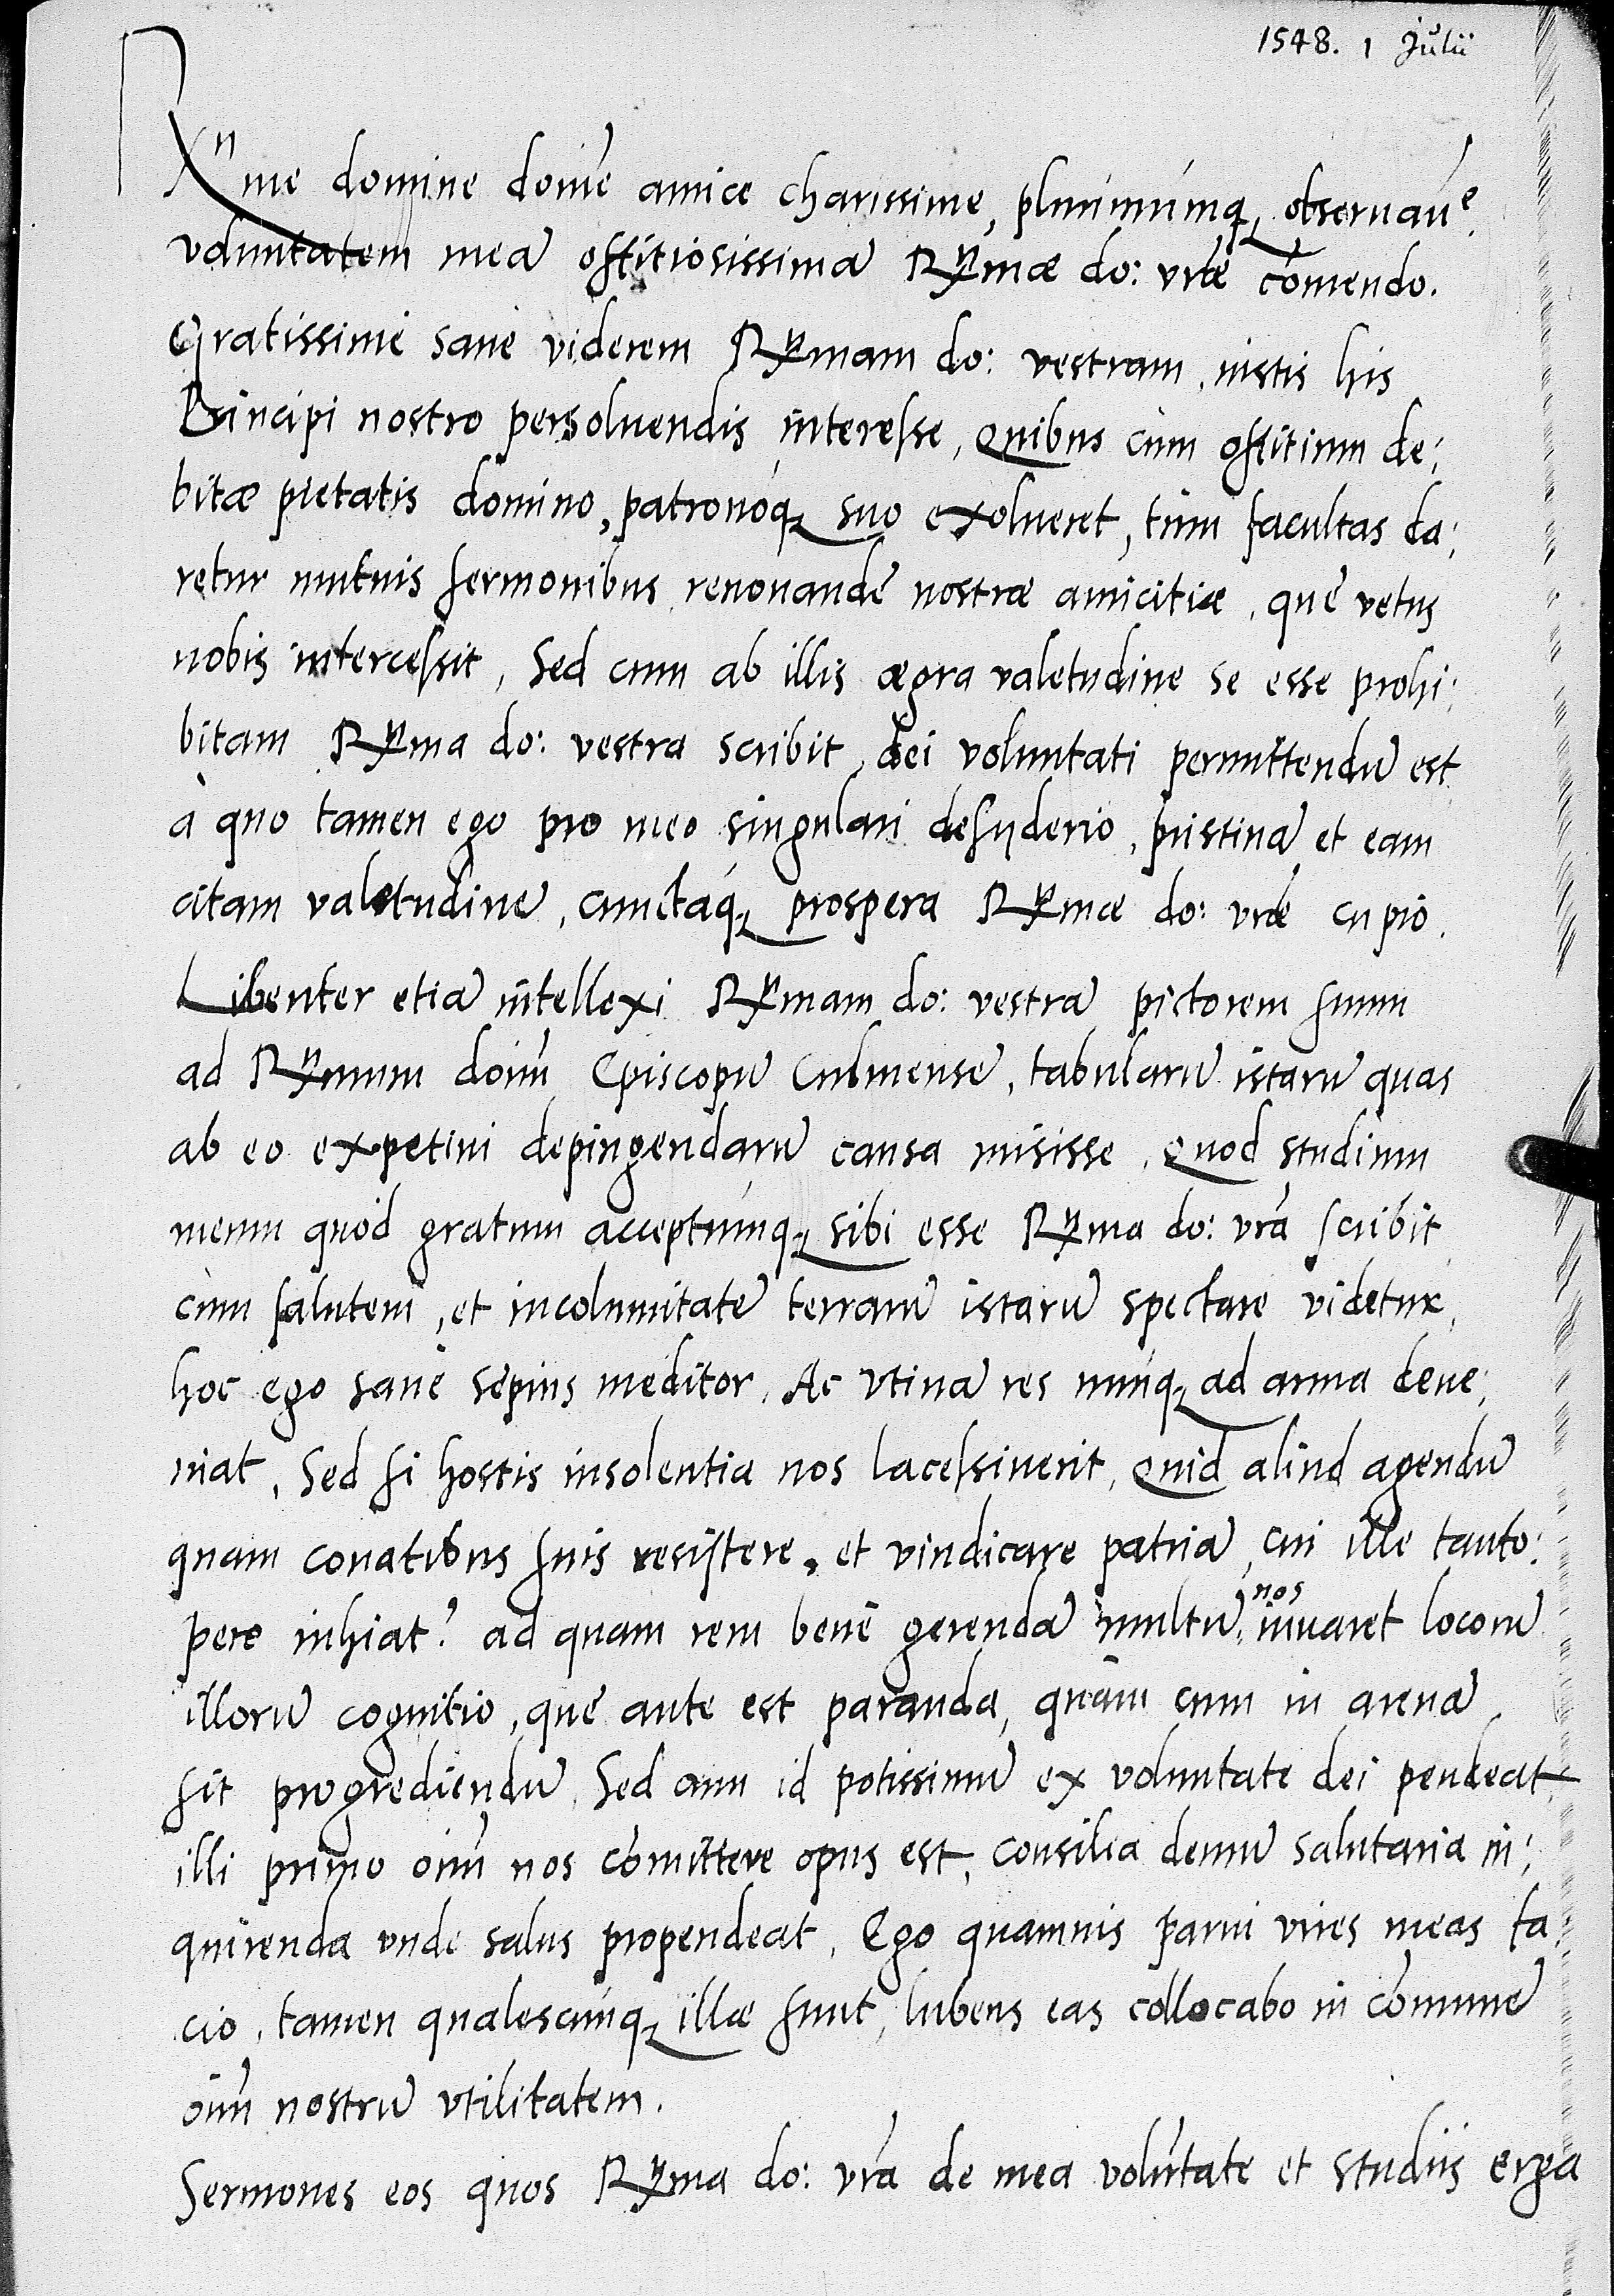 1548. 1 Julii
Rxnme domine domie amice charissime, plurimúmq, obseruan̄e
voluntatem meā offitiosissimā Rxmæ do: vrāe cōmendo.
Gratissimè sanè viderem Rxmam do: vestram, iustis his
Principi nostro persoluendis interesse, Quibus cùm offitium de:
bitæ pietatis domino, patronóq, suo exolueret, tùm facultas da:
retur mutuis sermonibus renouandę nostræ amicitiæ, quę vetus
nobis intercessit, Sed cum ab illis ægra valetudine se esse prohi:
bitam Rxma do: vestra scribit, dei voluntati permittendū est
à quo tamen ego pro meo singulari desyderio, pristinā et eam
citam valetudinē, cunctáq, prospera Rxmæ do: vrāe cupio.
Libenter etiā intellexi Rxmam do: vestrā pictorem suum
ad Rxmum doīm Episcopū Culmensē, tabularū istarū quas
ab eo expetiui depingendarū causa misisse, Quod studium
meum quòd gratum acceptúmq, sibi esse Rxma do: vrā scribit
cùm salutem, et incolumitatē terrarū istarū spectare videtur,
hoc ego sanè sępius meditor, Ac vtinā res nunq, ad arma deue:
niat, Sed si hostis insolentia nos lacessiuerit, Quid aliud agendū
quam conatibus suis resistere, et vindicare patriā, cui ille tanto:
pere inhiat? ad quam rem benè gerendā multū nos iuuaret locorū
illorū cognitio, quę ante est paranda, quàm cum in arenā
sit progrediendū, Sed cum id potissimū ex voluntate dei pendeat,
illi primo oīm nos cōmittere opus est, consilia demū salutaria in:
quirenda vnde salus propendeat, Ego quamuis parui vires meas fa:
cio, tamen qualescúnq, illæ sunt, lubens eas collocabo in cōmunē
oīm nostrū vtilitatem.
Sermones eos quos Rxma do: vrā de mea volūtate et studiis erga